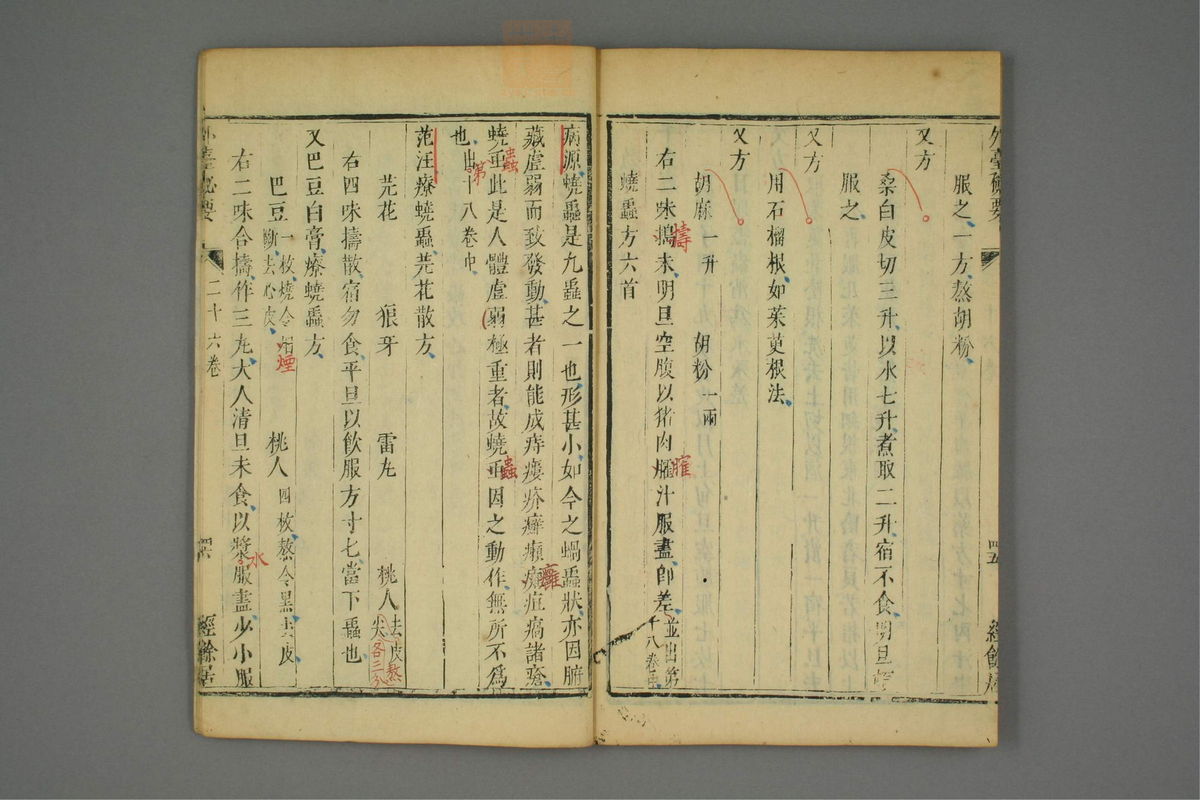 外臺秘要
四五
經餘居
服之、一方、熬胡粉、
又方
桑白皮切三升、以水七升、煮取二升、宿不食、明旦
服之、
又方
用石榴根、如茱萸根法、
又方
胡麻一升 胡粉一兩
右二味擣末、明旦空腹以猪肉臛汁服盡、即差、並出第十八卷中、
擣
臛
蟯蟲方六首
病源、蟯蟲是九蟲之一也、形甚小、如今之蝸蟲狀、亦因腑
藏虛弱而致發動、甚者則能成痔瘻疥癬癩癰疽瘑諸瘡、
癰
蟯虫此是人體虛弱極重者、故蟯虫因之動作、無所不爲
蟲
蟲
也、出十八卷中、
第
范汪療蟯蟲、芫花散方、
芫花 狼牙 雷丸 桃人去皮尖
熬
各三分
右四味擣散、宿勿食、平旦以飲服方寸匕、當下蟲也
又巴豆白膏、療蟯蟲方、
巴豆一枚、燒令斷、去心皮、 桃人四枚、熬令黑、去皮
煙
右二味合擣、作三丸、大人清旦未食、以漿服盡、少小服
水
外臺秘要
二十六卷
四六
經餘居